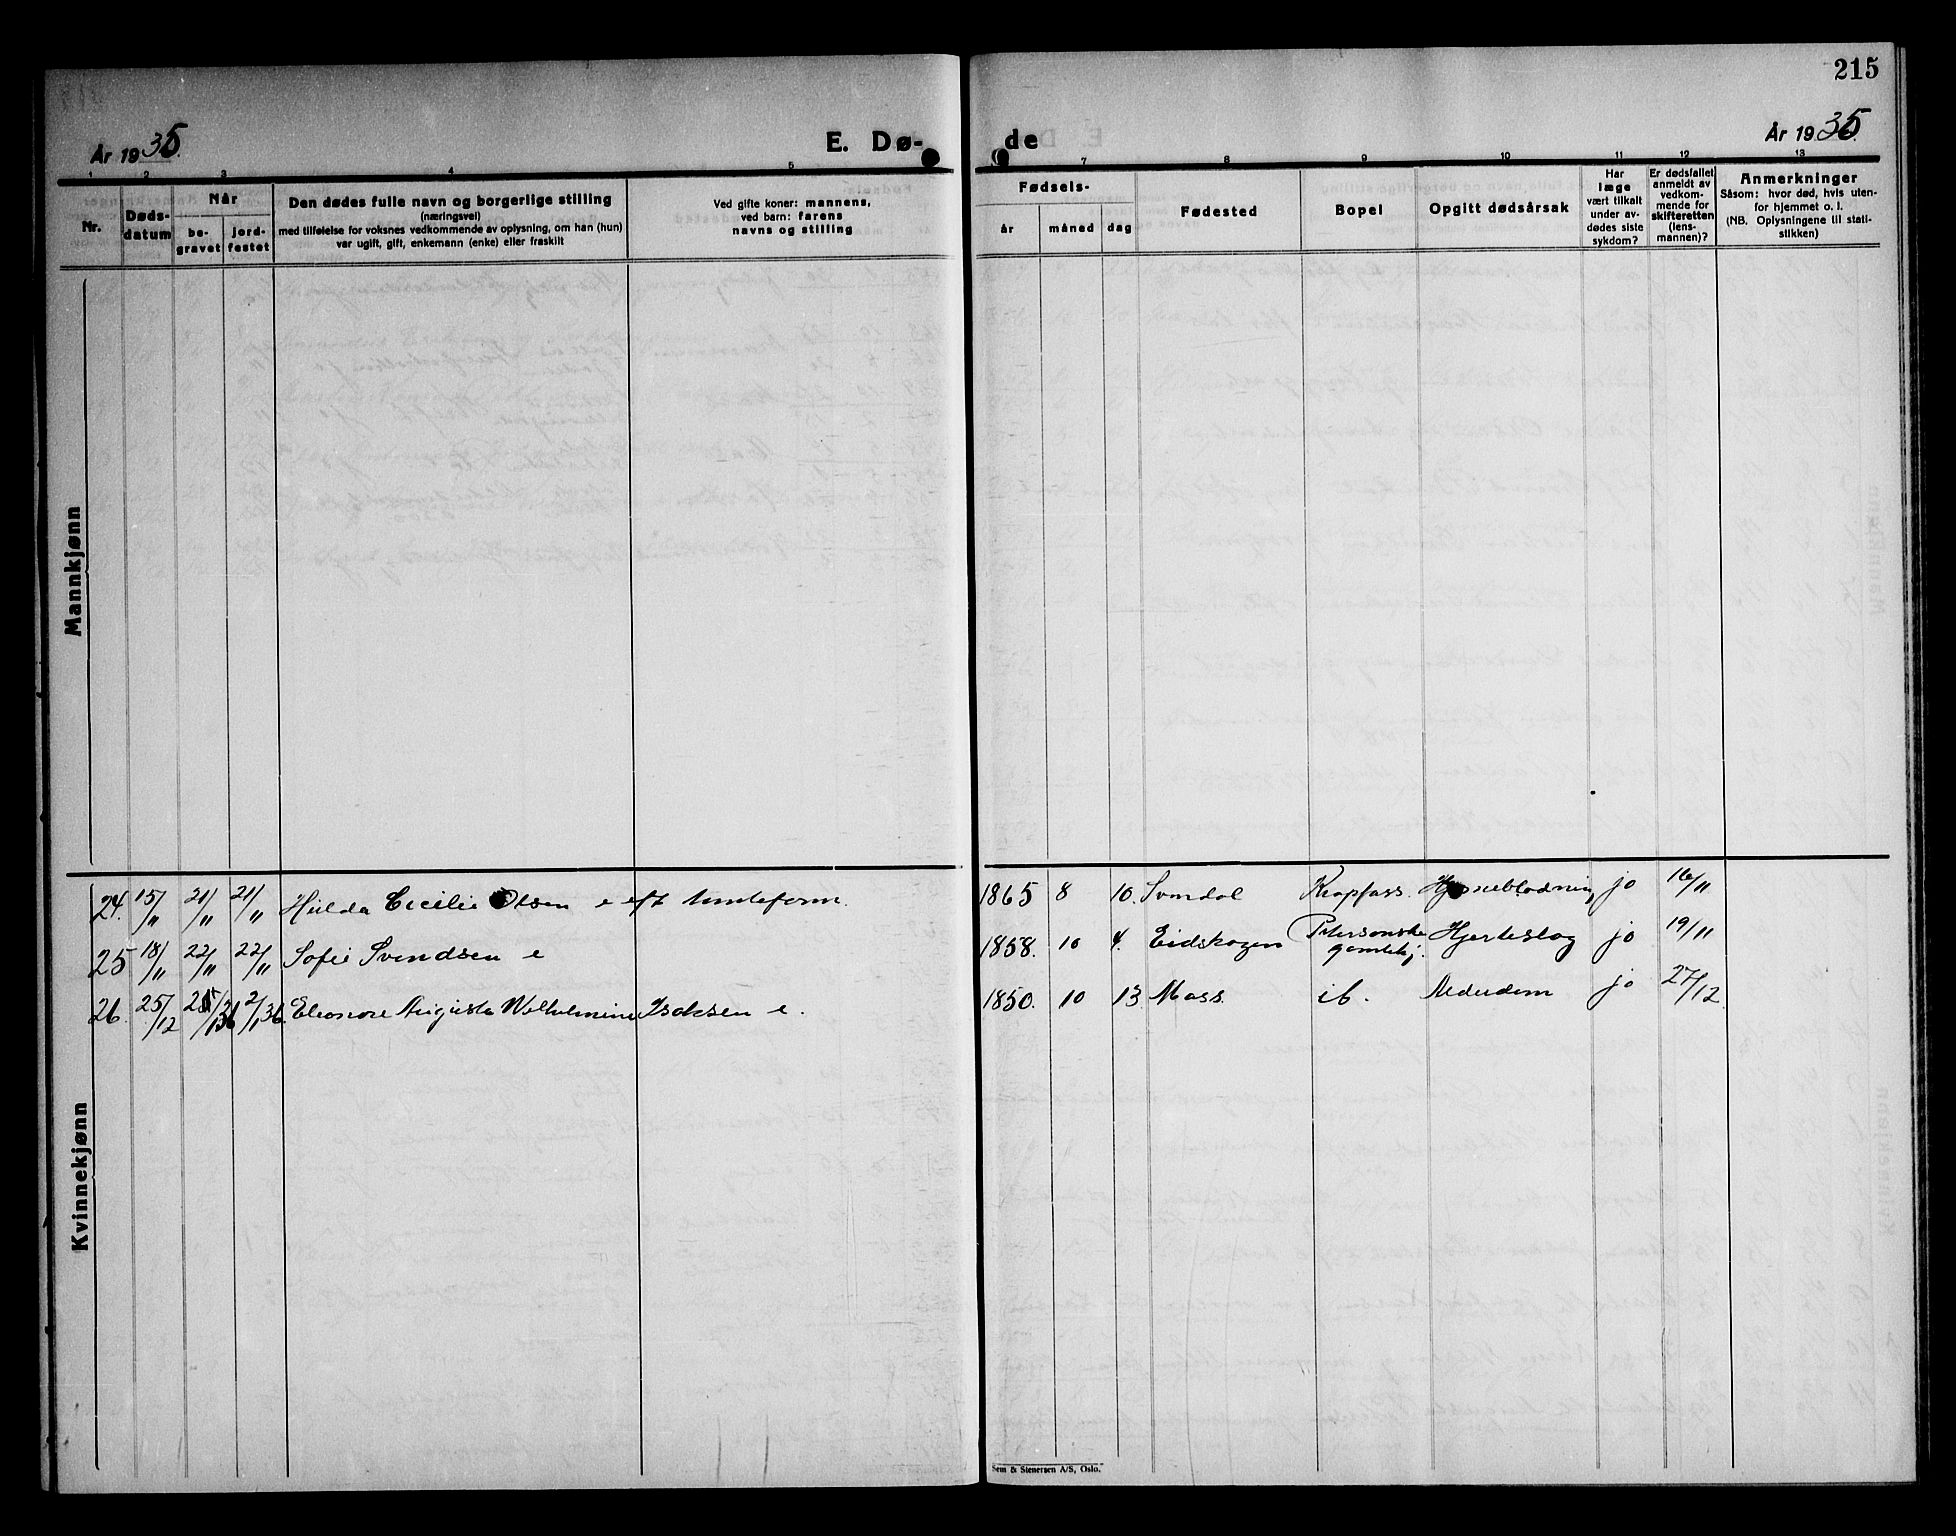 215
År 1935. E. Dø- de År 1935.
1 2 3 4 5 7 8 9 10 11 12 13
Nr.
Døds-
datum
Når
be-
gravet
jord-
festet
Den dødes fulle navn og borgerlige stilling
(næringsvei)
med tilføielse for voksnes vedkommende av oplysning, om han (hun)
var ugift, gift, enkemann (enke) eller fraskilt
Ved gifte koner: mannens,
ved barn: farens
navns og stilling
Fødsels-
år måned dag
Fødested
Bopel
Opgitt dødsårsak
Har
læge
vært tilkalt
under av-
dødes siste
sykdom?
Er dødsfallet
anmeldt av
vedkom-
mende for
skifteretten
(lens-
mannen)?
Anmerkninger
Såsom: hvor død, hvis uten-
for hjemmet o. l.
(NB. Oplysningene til stati-
stikken)
Mannkjønn
Kvinnekjønn
24. 15/11 21/11 21/11 Hulda Cecilie Olsen e eft 1865 8 10. Svindal Kropfass. Hjerneblødning jo 16/11
25 18/11 22/11 22/11 Sofie Svendsen e 1858. 10 4. Eidskogen Petersonske gamlehj. Hjerteslag jo 19/11
26. 25/12 2/1 36. Eleonore Augusta Wilhelmine Isaksen e. 1850. 10 13 Moss. ib. Alderdom jo 27/12
Sem & Stenersen A/S, Oslo.